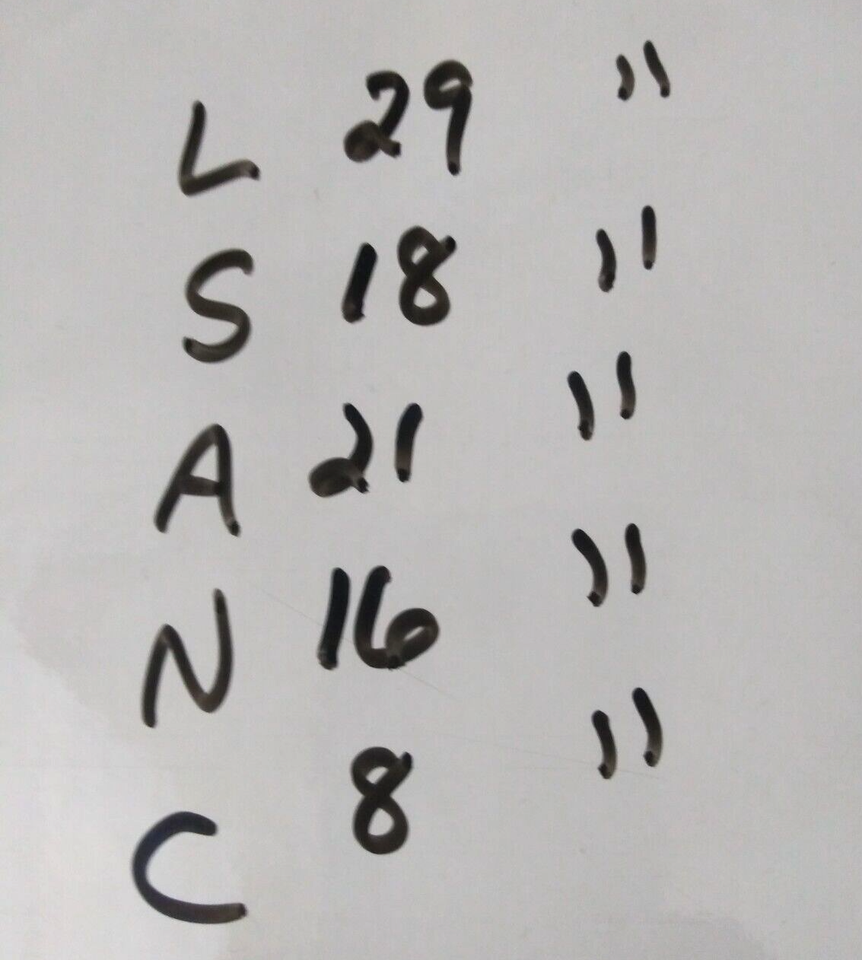 L 29 "
S 18 "
A 21 "
N 16 "
C 8 "